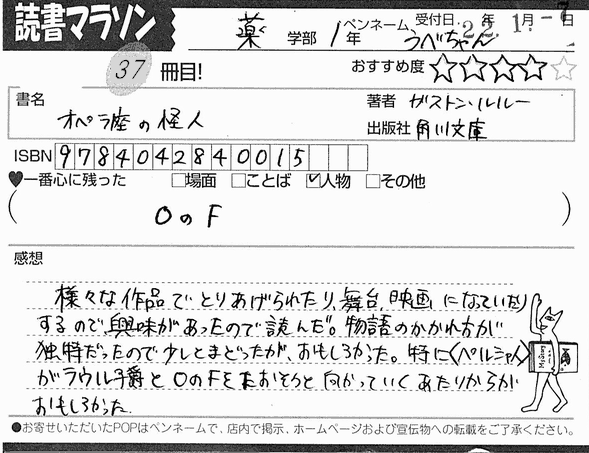 読書マラソン
薬 学部 1年 ペンネーム うべちゃん 受付日. 22年 1月 -7日
37 冊目! おすすめ度 ☆☆☆☆☆
書名 オペラ座の怪人 著者 ガストン・ルルー
出版社 角川文庫
ISBN 9784042840015
♥一番心に残った □場面 □ことば ☑人物 □その他
( OのF )
感想
様々な作品でとりあげられたり、舞台,映画 になっていたり
するので興味があったので読んだ。物語のかかれ方が
独特だったので少しとまどったが、おもしろかった。特に〈ペルシャ人〉
がラウル子爵とOのFをたおそうと向かっていくあたりからが
おもしろかった
●お寄せいただいたPOPはペンネームで、店内で掲示、ホームページおよび宣伝物への転載をご了承ください。